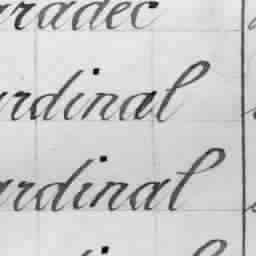 aradec
ardinal
ardinal